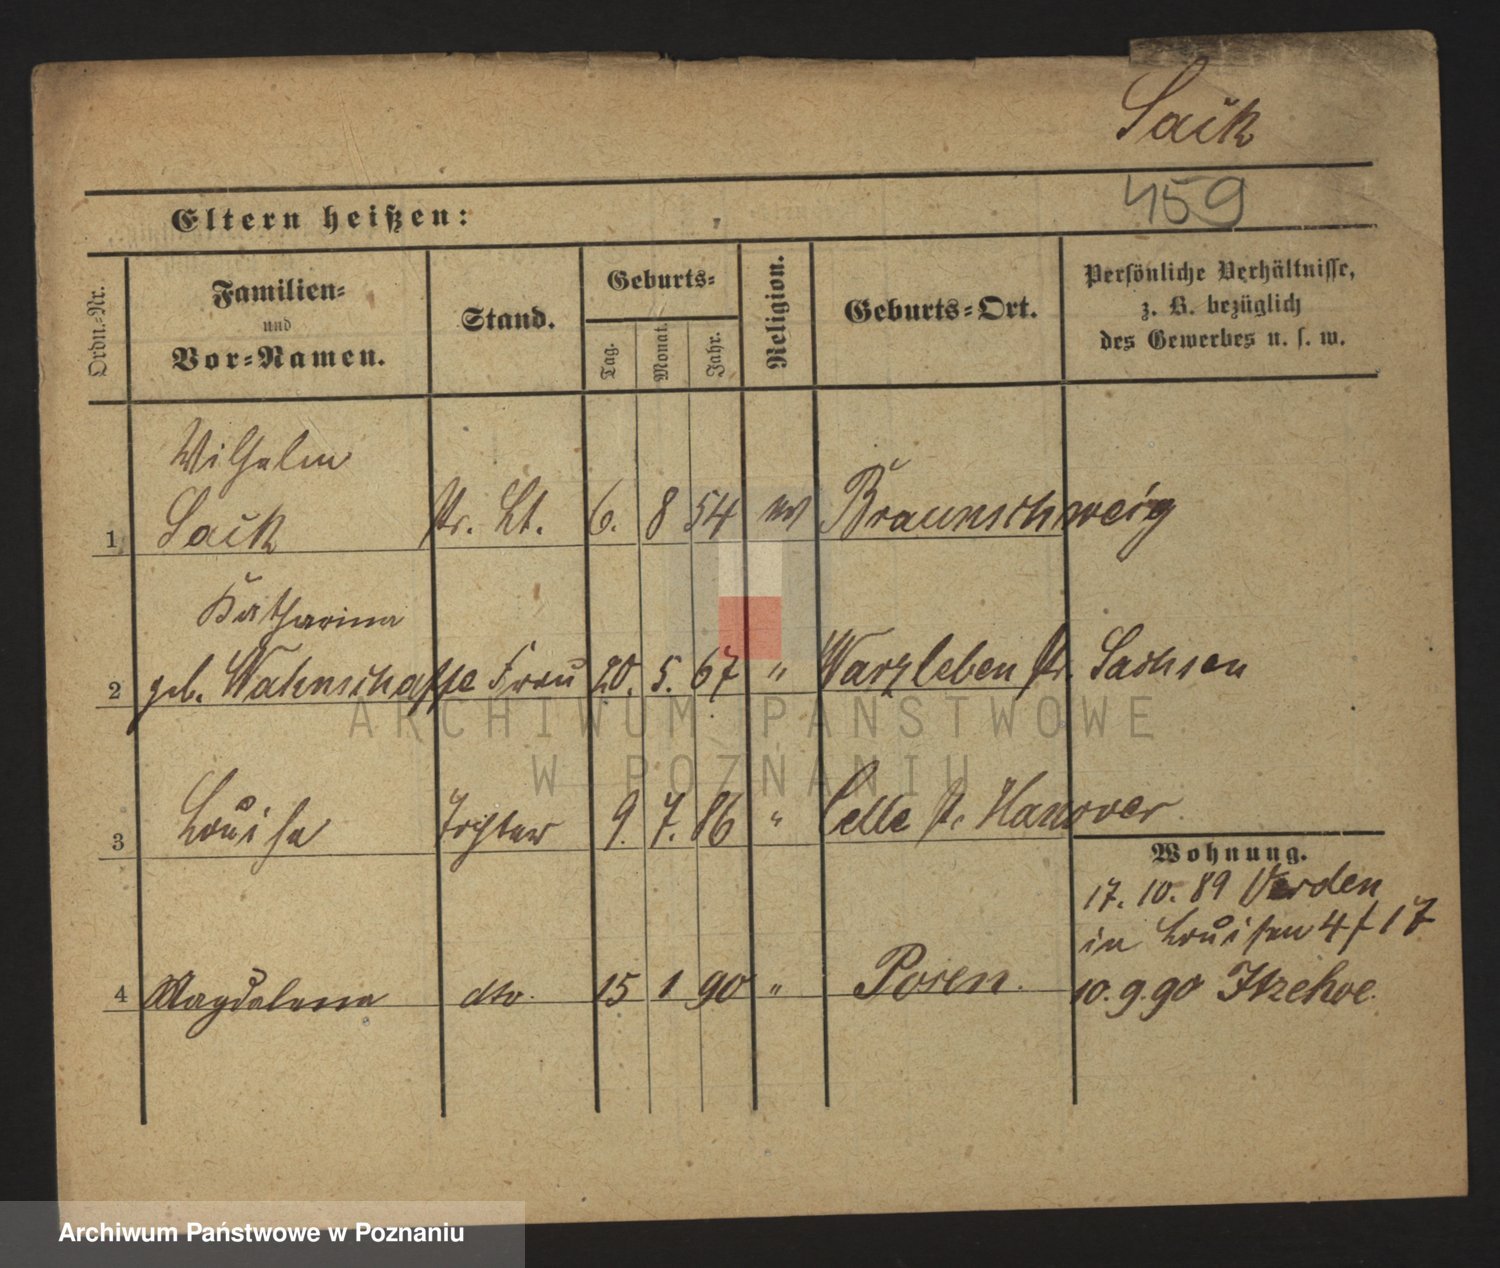 Sack
459
Eltern heißen:
Ordn.-Nr.
Familien-
und
Vor-Namen.
Stand.
Geburts-
Tag.
Monat.
Jahr.
Religion.
Geburts-Ort.
Persönliche Verhältnisse,
z. B. bezüglich
des Gewerbes u. s. w.
Wilhelm
1 Sack Pr. Lt. 6. 8 54 ev Braunschweig
Katharina
2 geb. Wahnschaffe Frau 20. 5. 67 " Warzleben Pr. Sachsen
3 Louise Tochter 9. 7. 86 " Celle Pr. Hanover
Wohnung.
17. 10. 89 Verden
in Louisen 4 / 17
4 Magdalena dto. 15 1 90 " Posen. 10. 9. 90 Itzehoe.
ARCHIWUM PAŃSTWOWE
W POZNANIU
Archiwum Państwowe w Poznaniu